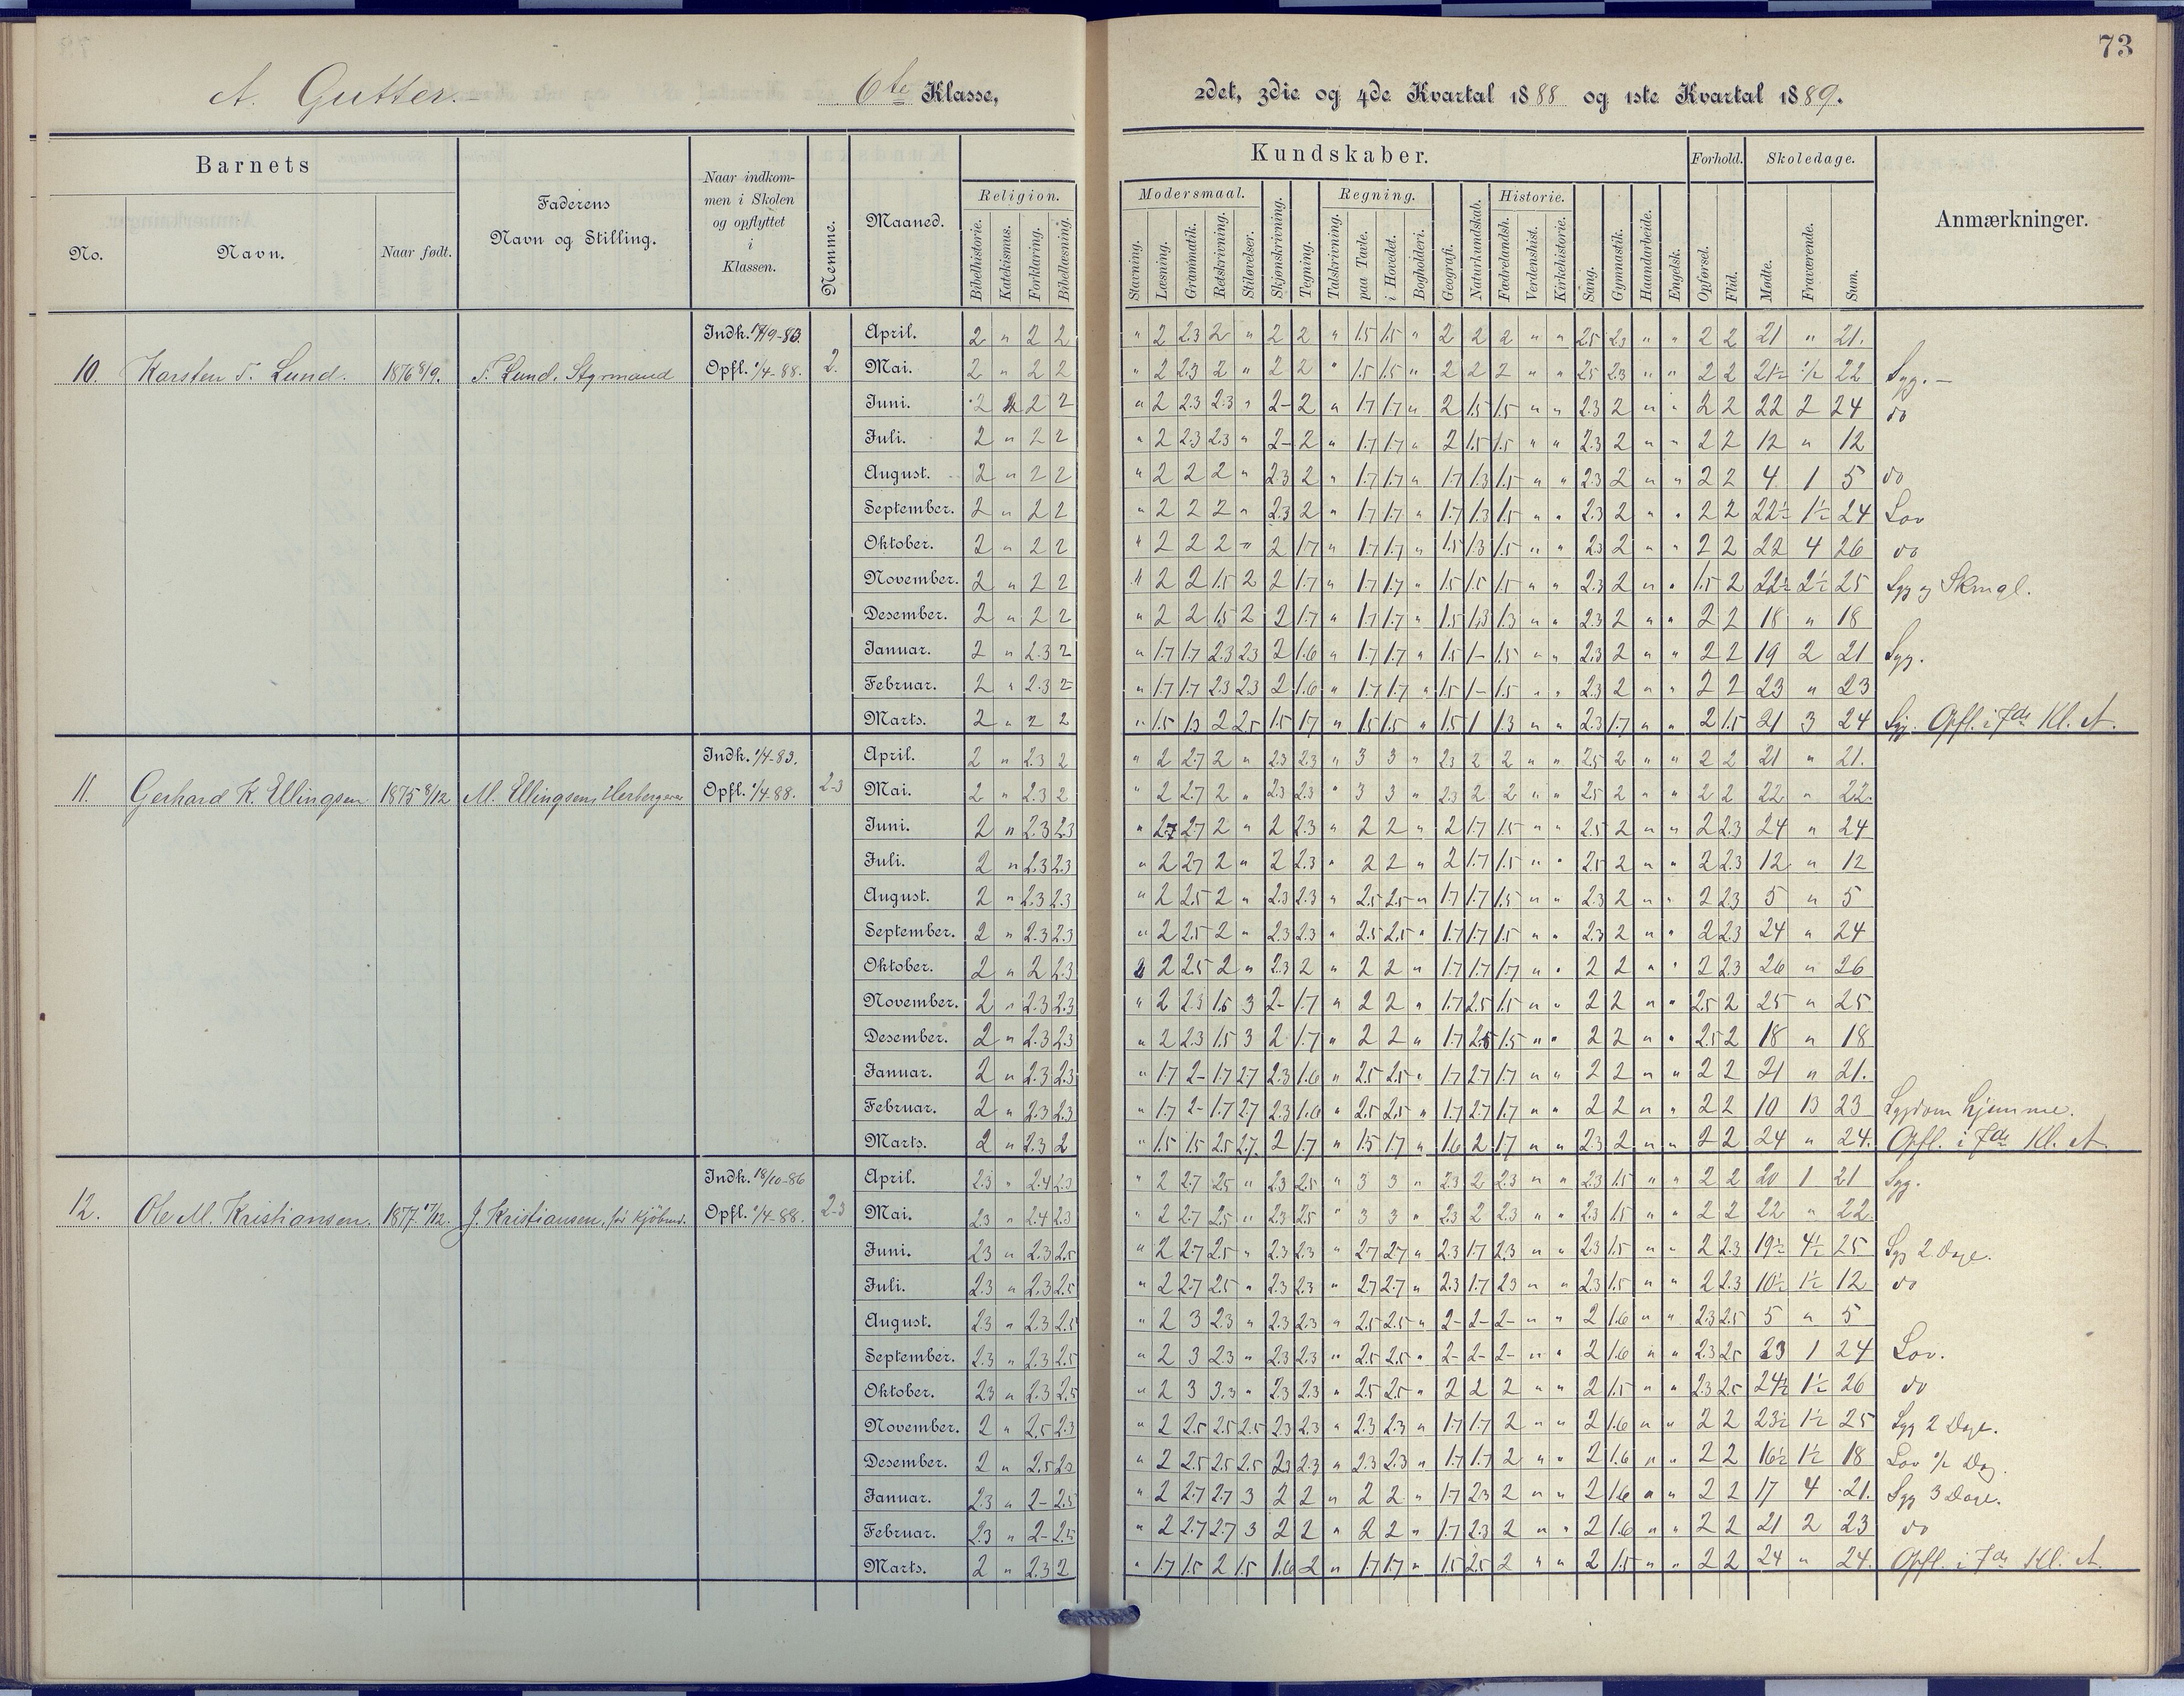 73
A. Gutter. 6te Klasse, 2det, 3die og 4de Kvartal 1888 og 1ste Kvartal 1889.
Barnets
No.
Navn.
Naar født.
Faderens
Navn og Stilling.
Naar indkom-
men i Skolen
og opflyttet
i
Klassen.
Nemme.
Maaned.
Kundskaber.
Religion.
Bibelhistorie.
Katekismus.
Forklaring.
Bibellæsning.
Modersmaal.
Stavning.
Læsning.
Grammatik.
Retskrivning.
Stiløvelser.
Skjønskrivning.
Tegning.
Regning.
Talskrivning.
paa Tavle.
i Hovedet.
Bogholderi.
Geografi.
Naturkundskab.
Historie.
Fædrelandsh.
Verdenshist.
Kirkehistorie.
Sang.
Gymnastik.
Haandarbeide.
Engelsk.
Forhold.
Opførsel.
Flid.
Skoledage.
Mødte.
Fraværende.
Sum.
Anmærkninger.
10. Karsten T. Lund. 1876 T. Lund, Styrmand Opfl. 1/4-88. 2.
April. 2 " 2 2 " 2 2.3 2 " 2 2 " 1.5 1.5 " 2 2 2 " " 2.5 2.3 " " 2 2 21 " 21.
Mai. 2 " 2 2 " 2 2.3 2 " 2 2 " 1.5 1.5 " 2 2 2 " " 2.5 2.3 " " 2 2 21½ ½ 22 Syg. -
Juni. 2 2 2 " 2 2.3 2.3 " 2- 2 " 1.7 1.7 " 2 1.5 1.5 " " 2.3 2 " " 2 2 22 2 24 do
Juli. 2 " 2 2 " 2 2.3 2.3 " 2- 2 " 1.7 1.7 " 2 1.5 1.5 " " 2.3 2 " " 2 2 12 " 12
August. 2 " 2 2 " 2 2 2 " 2.3 2 " 1.7 1.7 " 1.7 1.3 1.5 " " 2.3 2 " " 2 2 4 1 5 do
September. 2 " 2 2 " 2 2 2 " 2.3 2 " 1.7 1.7 " 1.7 1.3 1.5 " " 2.3 2 " " 2 2 22½ 1½ 24 Lov
Oktober. 2 " 2 2 " 2 2 2 " 2 1.7 " 1.7 1.7 " 1.5 1.3 1.5 " " 2.3 2 " " 2 2 22 4 26 do
November. 2 " 2 2 " 2 2 1.5 2 2 1.7 " 1.7 1.7 " 1.5 1.5 1.5 " " 2.3 2 " " 1.5 2 22½ 2½ 25 Syg og Skmgl.
Desember. 2 " 2 2 " 2 2 1.5 2 2 1.7 " 1.7 1.7 " 1.5 1.3 1.3 " " 2.3 2 " " 2 2 18 " 18
Januar. 2 " 2.3 2 " 1.7 1.7 2.3 2.3 2 1.6 " 1.7 1.7 " 1.5 1- 1.5 " " 2.3 2 " " 2 2 19 2 21 Syg.
Februar. 2 " 2.3 2 " 1.7 1.7 2.3 2.3 2 1.6 " 1.7 1.7 " 1.5 1- 1.5 " " 2.3 2 " " 2 2 23 " 23
Marts. 2 " 2 2 " 1.5 1.3 2 2.5 1.5 1.7 " 1.5 1.5 " 1.5 1 1.3 " " 2.3 1.7 " " 2 1.5 21 3 24 Syg. Opfl. i 7de Kl. A.
Indk. 1/4-83.
11. Gerhard K. Ellingsen 1875 8/12 M. Ellingsen, Opfl. 1/4-88. 2.3
April. 2 " 2.3 2 " 2 2.7 2 " 2.3 2.3 " 3 3 " 2.3 2 2 " " 2.5 2 " " 2 2 21 " 21.
Mai. 2 " 2.3 2 " 2 2.7 2 " 2.3 2.3 " 3 3 " 2.3 2 2 " " 2.5 2 " " 2 2 22 " 22.
Juni. 2 " 2.3 2.3 " 2.7 2.7 2 " 2 2.3 " 2 2 " 2 1.7 1.5 " " 2.5 2 " " 2 2.3 24 " 24
Juli. 2 " 2.3 2.3 " 2 2.7 2 " 2 2.3 " 2 2 " 2 1.7 1.5 " " 2.5 2 " " 2 2.3 12 " 12
August. 2 " 2.3 2.3 " 2 2.5 2 " 2.3 2.3 " 2.5 2.5 " 1.7 1.7 1.5 " " 2.3 2 " " 2 2.3 5 " 5
September. 2 " 2.3 2.3 " 2 2.5 2 " 2.3 2.3 " 2.5 2.5 " 1.7 1.7 1.5 " " 2.3 2 " " 2 2.3 24 " 24
Oktober. 2 " 2 2.3 2 2.5 2 " 2.3 2 " 2 2 " 1.7 1.7 1.7 " " 2 2 " " 2 2.3 26 " 26
November. 2 " 2.3 2.3 " 2 2.3 1.5 3 2- 1.7 " 2 2 " 1.7 2.5 1.5 " " 2 2 " " 2.5 2 25 " 25
Desember. 2 " 2.3 2.3 " 2 2.3 1.5 3 2 1.7 " 2 2 " 1.7 2.5 1.5 " " 2 2 " " 2.5 2 18 " 18
Januar. 2 " 2.3 2.3 " 1.7 2- 1.7 2.7 2.3 1.6 " 2.5 2.5 " 1.7 2.7 1.7 " " 2 2 " " 2 2 21 " 21.
Februar. 2 " 2.3 2.3 " 1.7 2- 1.7 2.7 2.3 1.6 " 2.5 2.5 " 1.7 2.7 1.7 " " 2 2 " " 2 2 10 13 23 Sygdom hjemme.
Marts. 2 " 2.3 2 " 1.5 1.5 2.5 2.7 2 1.7 " 1.5 1.7 " 1.6 2 1.7 " " 2.3 2 " " 2 2 24 " 24. Opfl. i 7de Kl. A
Indk. 18/10-86
12. Ole M. Kristiansen. 1877. 17/12. J. Kristiansen, Opfl. 1/4-88. 2.3
April. 2.3 " 2.4 2.3 " 2 2.7 2.5 " 2.3 2.5 " 3 3 " 2.3 2 2.3 " " 2.3 1.5 " " 2 2 20 1 21 Syg.
Mai. 2.3 " 2.4 2.3 " 2 2.7 2.5 " 2.3 2.5 " 3 3 " 2.3 2 2.3 " " 2.3 1.5 " " 2 2 22 " 22.
Juni. 2.3 " 2.3 2.5 " 2 2.7 2.5 " 2.3 2.3 " 2.7 2.7 " 2.3 1.7 2.3 " " 2.3 1.5 " " 2 2.3 19½ 4½ 25 Syg 2 Dage.
Juli. 2.3 " 2.3 2.5 " 2 2.7 2.5 " 2.3 2.3 " 2.7 2.7 " 2.3 1.7 2.3 " " 2.3 1.5 " " 2 2.3 10½ 1½ 12 do
August. 2.3 " 2.3 2.5 " 2 3 2.3 " 2.3 2.3 " 2.5 2.5 " 2- 2- 2- " " 2 1.6 " " 2.3 2.5 5 " 5
September. 2.3 " 2.3 2.5 " 2 3 2.3 " 2.3 2.3 " 2.5 2.5 " 2- 2- 2- " " 2 1.6 " " 2.3 2.5 23 1 24 Lov.
Oktober. 2.3 " 2.3 2.5 " 2 3 3.3 " 2.3 2.3 " 2.5 2.5 " 2 2 2 " " 2 1.5 " " 2.3 2.5 24½ 1½ 26 do
November. 2 " 2.5 2.3 " 2 2.5 2.5 2.5 2.3 2.3 " 2.3 2.3 " 1.7 1.7 2 " " 2 1.6 " " 2 2 23½ 1½ 25 Syg 2 Dage.
Desember. 2 " 2.5 2.3 " 2 2.5 2.5 2.5 2.3 2.3 " 2.3 2.3 " 1.7 1.7 2 " " 2 1.6 " " 2 2 16½ 1½ 18 Lov ½ Dag.
Januar. 2.3 " 2- 2.5 " 2 2.7 2.7 3 2 2 " 2 2 " 1.7 2.3 2 " " 2 1.6 " " 2 2 17 4 21. Syg 3 Dage.
Februar. 2.3 " 2- 2.5 " 2 2.7 2.7 3 2 2 " 2 2 " 1.7 2.3 2 " " 2 1.6 " " 2 2 21 2 23 do
Marts. 2 " 2.3 2 " 1.7 1.5 2 1.5 1.6 2 " 1.7 1.7 " 1.5 2.5 2 " " 2 1.5 " " 2 2 24 " 24. Opfl. i 7de Kl. A.